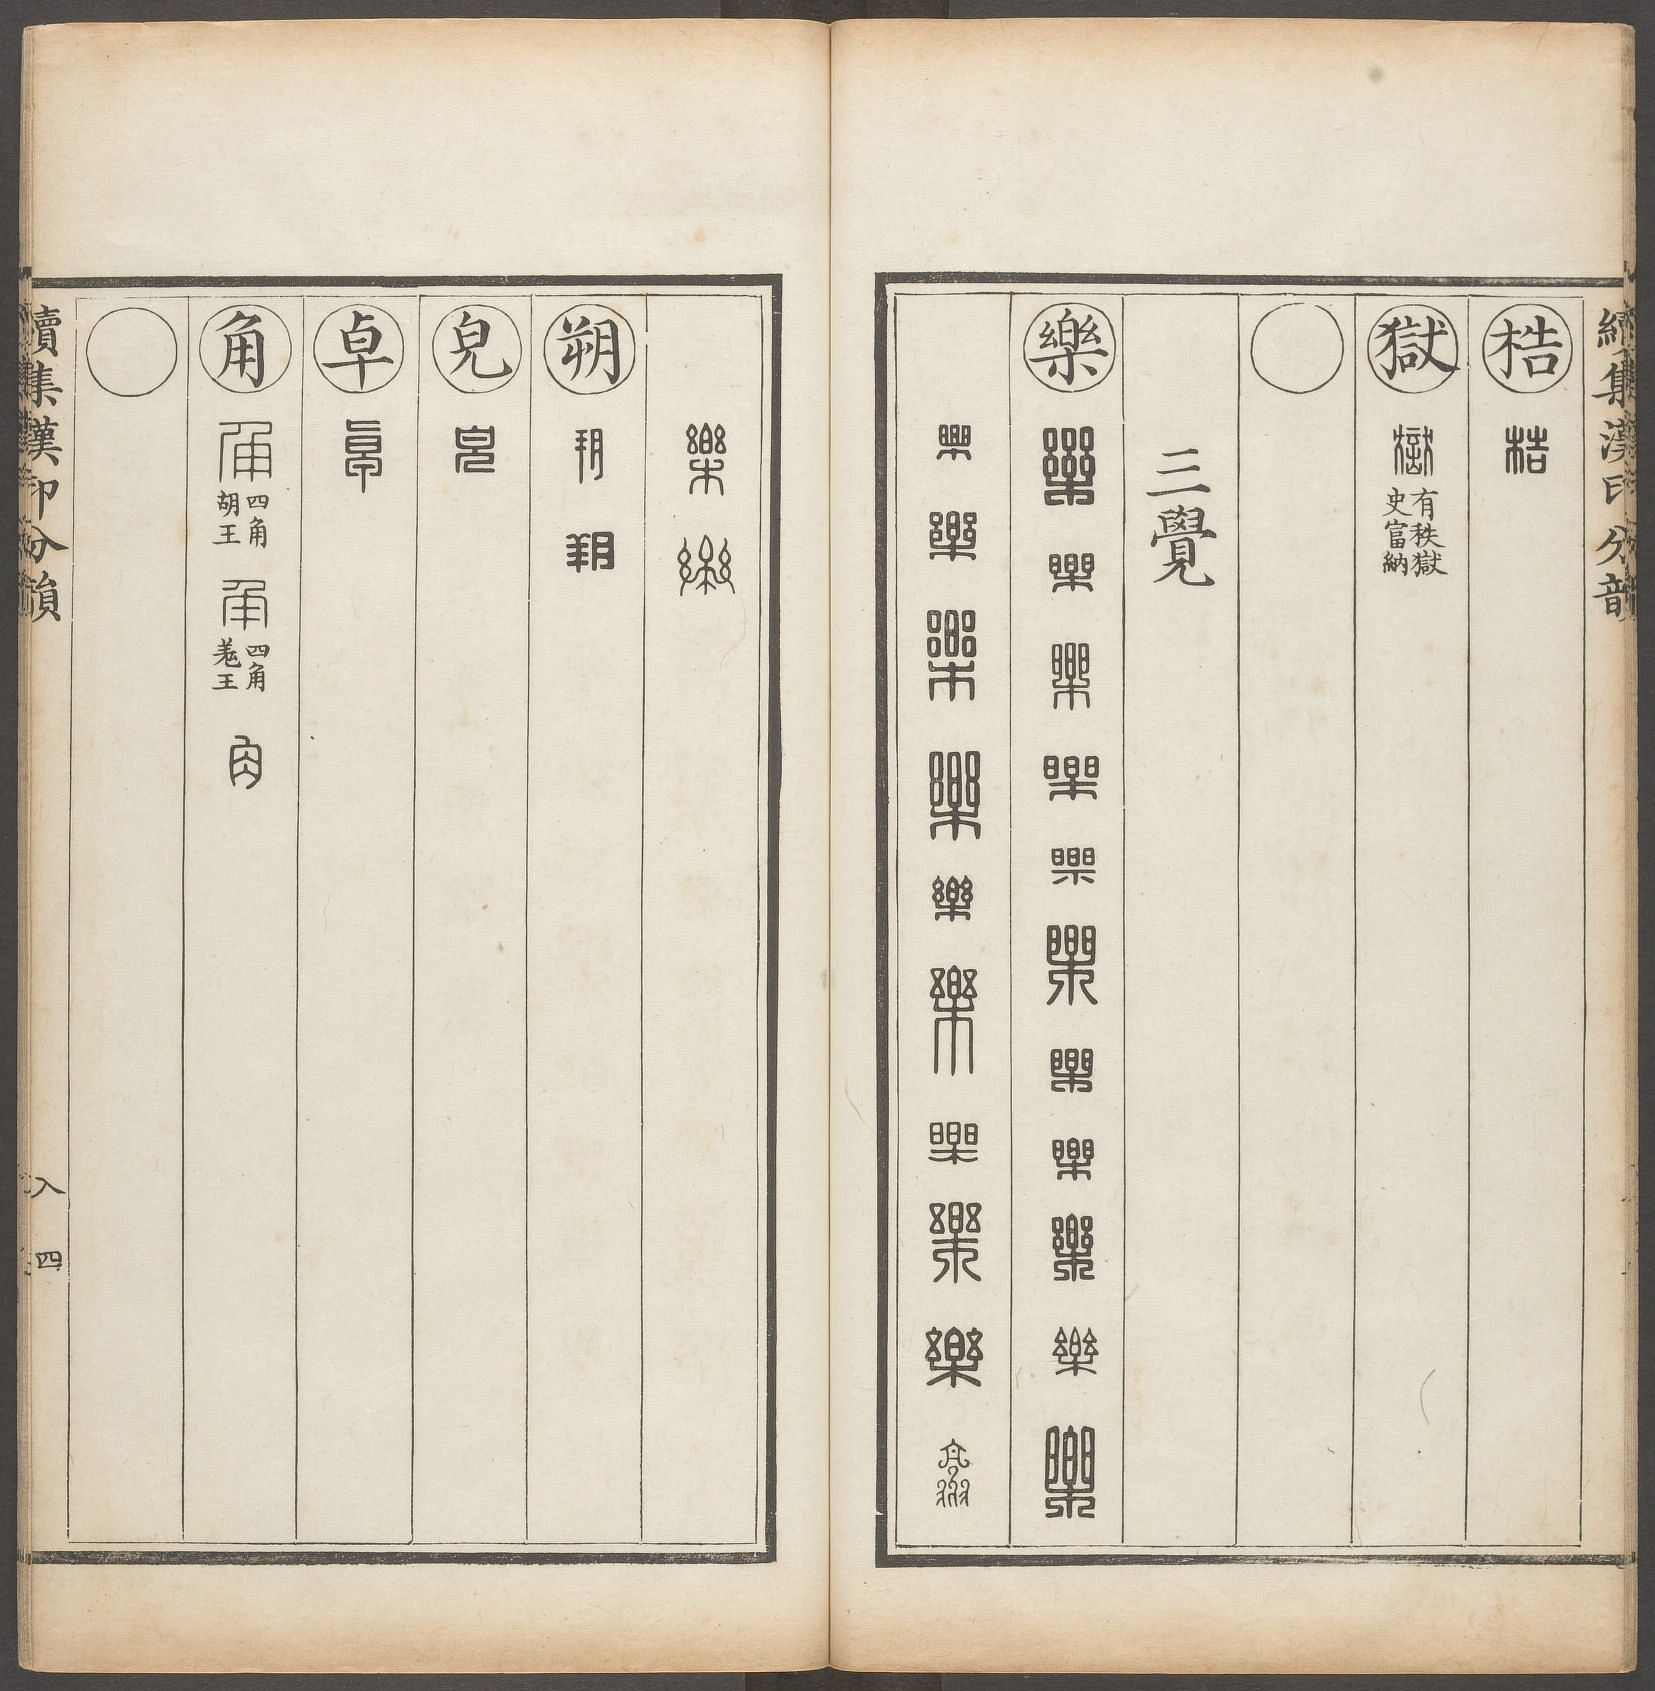 續集漢印分韻
梏 梏
獄 獄 有秩獄史富納
三覺
樂 樂 樂 樂 樂 樂 樂 樂 樂 樂 樂 樂
樂 樂 樂 樂 樂 樂 樂 樂 樂
樂 樂
朔 朔 朔
皃 皃
卓 卓
角 角 四角胡王 角 四角羌王 角
續集漢印分韻 入 四